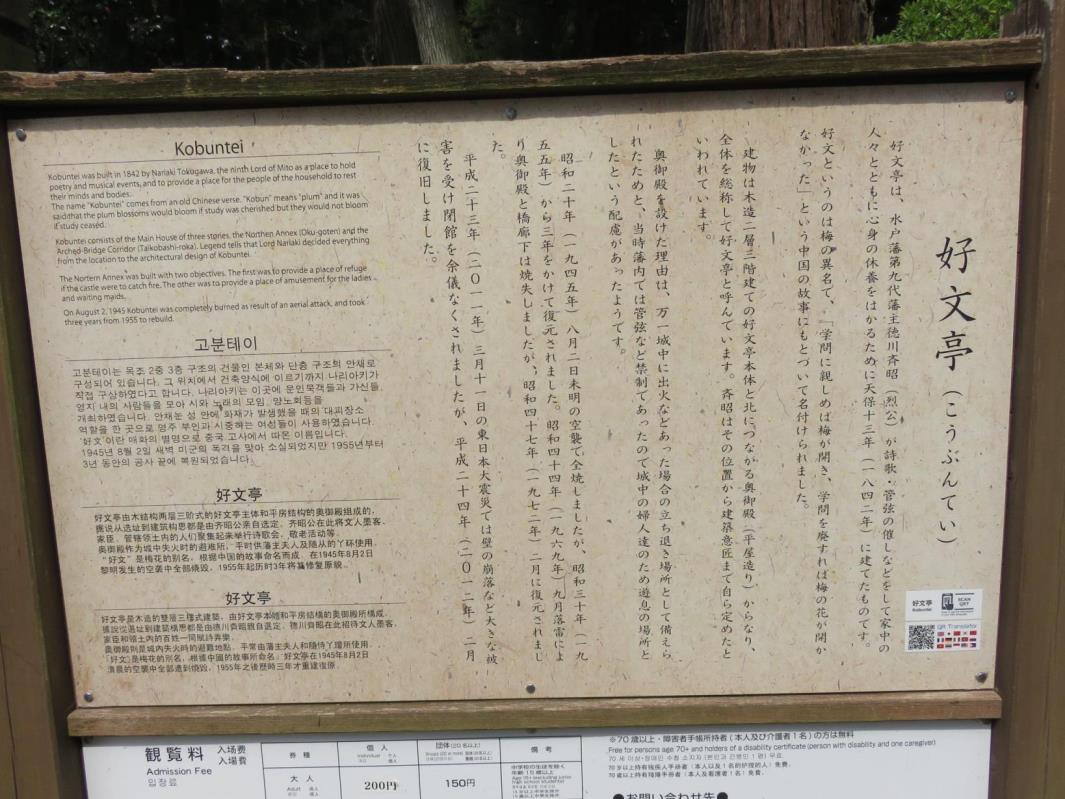 好文亭（こうぶんてい）
好文亭は、水戸藩第九代藩主徳川斉昭（烈公）が詩歌・管弦の催しなどをして家中の
人々とともに心身の休養をはかるために天保十三年（一八四二年）に建てたものです。
好文というのは梅の異名で、「学問に親しめば梅が開き、学問を廃すれば梅の花が開か
なかった」という中国の故事にもとづいて名付けられました。
建物は木造二層三階建ての好文亭本体と北につながる奥御殿（平屋造り）からなり、
全体を総称して好文亭と呼んでいます。斉昭はその位置から建築意匠まで自ら定めたと
いわれています。
奥御殿を設けた理由は、万一城中に出火などあった場合の立ち退き場所として備えら
れたためと、当時藩内では管弦など禁制であったので城中の婦人達のため遊息の場所と
したという配慮があったようです。
昭和二十年（一九四五年）八月二日未明の空襲で全焼しましたが、昭和三十年（一九
五五年）から三年をかけて復元されました。昭和四十四年（一九六九年）九月落雷によ
り奥御殿と橋廊下は焼失しましたが、昭和四十七年（一九七二年）二月に復元されまし
た。
平成二十三年（二〇一一年）三月十一日の東日本大震災では壁の崩落など大きな被
害を受け閉館を余儀なくされましたが、平成二十四年（二〇一二年）二月
に復旧しました。
Kobuntei
Kobuntei was built in 1842 by Nariaki Tokugawa, the ninth Lord of Mito as a place to hold
poetry and musical events, and to provide a place for the people of the household to rest
their minds and bodies.
The name "Kobuntei" comes from an old Chinese verse. "Kobun" means "plum" and it was
said that the plum blossoms would bloom if study was cherished but they would not bloom
if study ceased.
Kobuntei consists of the Main House of three stories, the Northen Annex (Oku-goten) and the
Arched-Bridge Corridor (Taikobashi-roka). Legend tells that Lord Nariaki decided everything
from the location to the architectural design of Kobuntei.
The Nortern Annex was built with two objectives. The first was to provide a place of refuge
if the castle were to catch fire. The other was to provide a place of amusement for the ladies
and waiting maids.
On August 2, 1945 Kobuntei was completely burned as result of an aerial attack, and took
three years from 1955 to rebuild.
고분테이
고분테이는 목조 2중 3층 구조의 건물인 본체와 단층 구조의 안채로
구성되어 있습니다. 그 위치에서 건축양식에 이르기까지 나리아키가
직접 구상하였다고 합니다. 나리아키는 이곳에 문인묵객들과 가신들,
영지 내의 사람들을 모아 시와 노래의 모임, 양노회등을
개최하였습니다. 안채는 성 안에 화재가 발생했을 때의 대피장소
역할을 한 곳으로 영주 부인과 시중하는 여성들이 사용하였습니다.
'好文'이란 매화의 별명으로 중국 고사에서 따온 이름입니다.
1945년 8월 2일 새벽 미군의 폭격을 맞아 소실되었지만 1955년부터
3년 동안의 공사 끝에 복원되었습니다.
好文亭
好文亭由木结构两层三阶式的好文亭主体和平房结构的奥御殿组成的,
据说从选址到建筑构思都是由齐昭公亲自选定。齐昭公在此将文人墨客,
家臣, 管辖领土内的人们聚集起来举行诗歌会, 敬老活动等。
奥御殿作为城中失火时的避难所, 平时供藩主夫人及随从的丫环使用。
"好文"是梅花的别名, 根据中国的故事命名而成。在1945年8月2日
黎明发生的空袭中全部烧毁, 1955年起历时3年将其修复原貌。
好文亭
好文亭是木造的雙層三樓式建築, 由好文亭本體和平房結構的奧御殿所構成。
據說從選址到建築構思都是由德川齊昭親自選定, 德川齊昭在此招待文人墨客、
家臣和領土內的百姓一同賦詩弄樂。
奧御殿則是城內失火時的避難地點, 平常由藩主夫人和隨侍丫環所使用。
「好文」是梅花的別名, 根據中國的故事所命名。好文亭在1945年8月2日
清晨的空襲中全部遭到燒毀, 1955年之後歷時三年才重建復原。
好文亭
Kobuntei
SCAN
QR!
QR Translator
観覧料
入场费
入場費
Admission Fee
입장료
券種
個人
Individual
団体(20名以上)
備考
大人
Adult
200円
150円
中学校の生徒を除く
年齢15歳以上
※70歳以上・障害者手帳所持者(本人及び介護者1名)の方は無料
Free for persons age 70+ and holders of a disability certificate (person with disability and one caregiver)
70 세 이상・장애인 수첩 소지자 (본인과 간병인 1 명) 무료
70 岁以上持有残疾人手册者 (本人以及 1 名的护理的人) 免费。
70 歲以上持有殘障手冊者 (本人及看護者 1 名) 免費。
●お問い合わせ先●